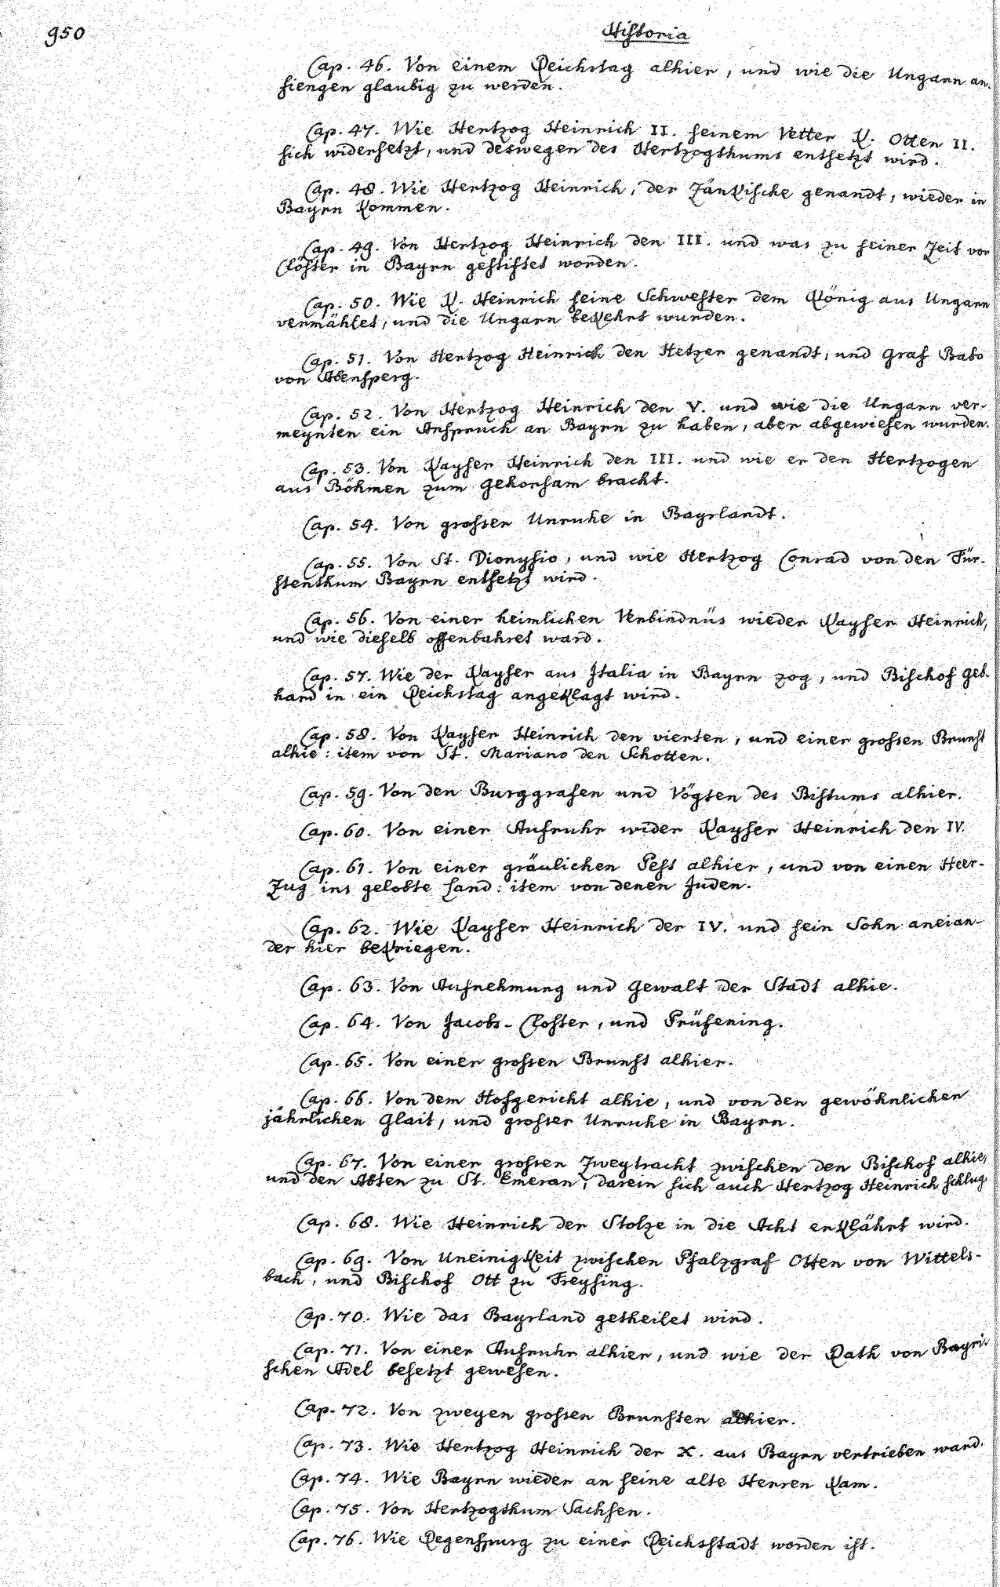 950
Historia
Cap. 46. Von einem Reichstag alhier, und wie die Ungarn an-
fiengen glaubig zu werden.
Cap. 47. Wie Hertzog Heinrich II. seinem Vetter K. Otten II.
sich widersetzt, und deswegen des Hertzogthums entsetzt wird.
Cap. 48. Wie Hertzog Heinrich, der Zänkische genandt, wieder in
Bayrn kommen.
Cap. 49. Von Hertzog Heinrich den III. und was zu seiner Zeit vor
Clöster in Bayrn gestiftet worden.
Cap. 50. Wie K. Heinrich seine Schwester dem König aus Ungarn
vermählet, und die Ungarn bekehrt wurden.
Cap. 51. Von Hertzog Heinrich den Hetzer genandt, und Graf Babo
von Abensperg.
Cap. 52. Von Hertzog Heinrich den V. und wie die Ungarn ver-
meynten ein Anspruch an Bayrn zu haben, aber abgewiesen wurden.
Cap. 53. Von Kayser Heinrich den III. und wie er den Hertzogen
aus Böhmen zum Gehorsam bracht.
Cap. 54. Von grosser Unruhe in Bayrlandt.
Cap. 55. Von St. Dionysio, und wie Hertzog Conrad von den Für-
stenthum Bayrn entsetzt wird.
Cap. 56. Von einer heimlichen Verbindnüs wieder Kayser Heinrich,
und wie dieselb offenbahret ward.
Cap. 57. Wie der Kayser aus Italia in Bayrn zog, und Bischof Geb-
hard in ein Reichstag angeklagt wird.
Cap. 58. Von Kayser Heinrich den vierten, und einer grossen Brunst
alhie: item von St. Mariano den Schotten.
Cap. 59. Von den Burggrafen und Vögten des Bistums alhier.
Cap. 60. Von einer Aufruhr wider Kayser Heinrich den IV.
Cap. 61. Von einer gräulichen Pest alhier, und von einen Heer-
Zug ins gelobte Land: item von denen Juden.
Cap. 62. Wie Kayser Heinrich der IV. und sein Sohn aneian-
der hier bekriegen.
Cap. 63. Von Aufnehmung und Gewalt der Stadt alhie.
Cap. 64. Von Jacobs-Closter, und Prüfening.
Cap. 65. Von einer grossen Brunst alhier.
Cap. 66. Von dem Hofgericht alhie, und von den gewöhnlichen
jährlichen Glait, und grosser Unruhe in Bayrn.
Cap. 67. Von einer grossen Zweytracht zwischen den Bischof alhie,
und den Abten zu St. Emeran, darein sich auch Hertzog Heinrich schlug.
Cap. 68. Wie Heinrich der Stolze in die Acht erklährt wird.
Cap. 69. Von Uneinigkeit zwischen Pfalzgraf Otten von Wittels-
bach, und Bischof Ott zu Freysing.
Cap. 70. Wie das Bayrland getheilet wird.
Cap. 71. Von einer Aufruhr alhier, und wie der Rath von Bayri-
schen Adel besetzt gewesen.
Cap. 72. Von zweyen grossen Brunsten alhier.
Cap. 73. Wie Hertzog Heinrich der X. aus Bayrn vertrieben ward.
Cap. 74. Wie Bayrn wieder an seine alte Herren kam.
Cap. 75. Von Hertzogthum Sachsen.
Cap. 76. Wie Regenspurg zu einer Reichsstadt worden ist.